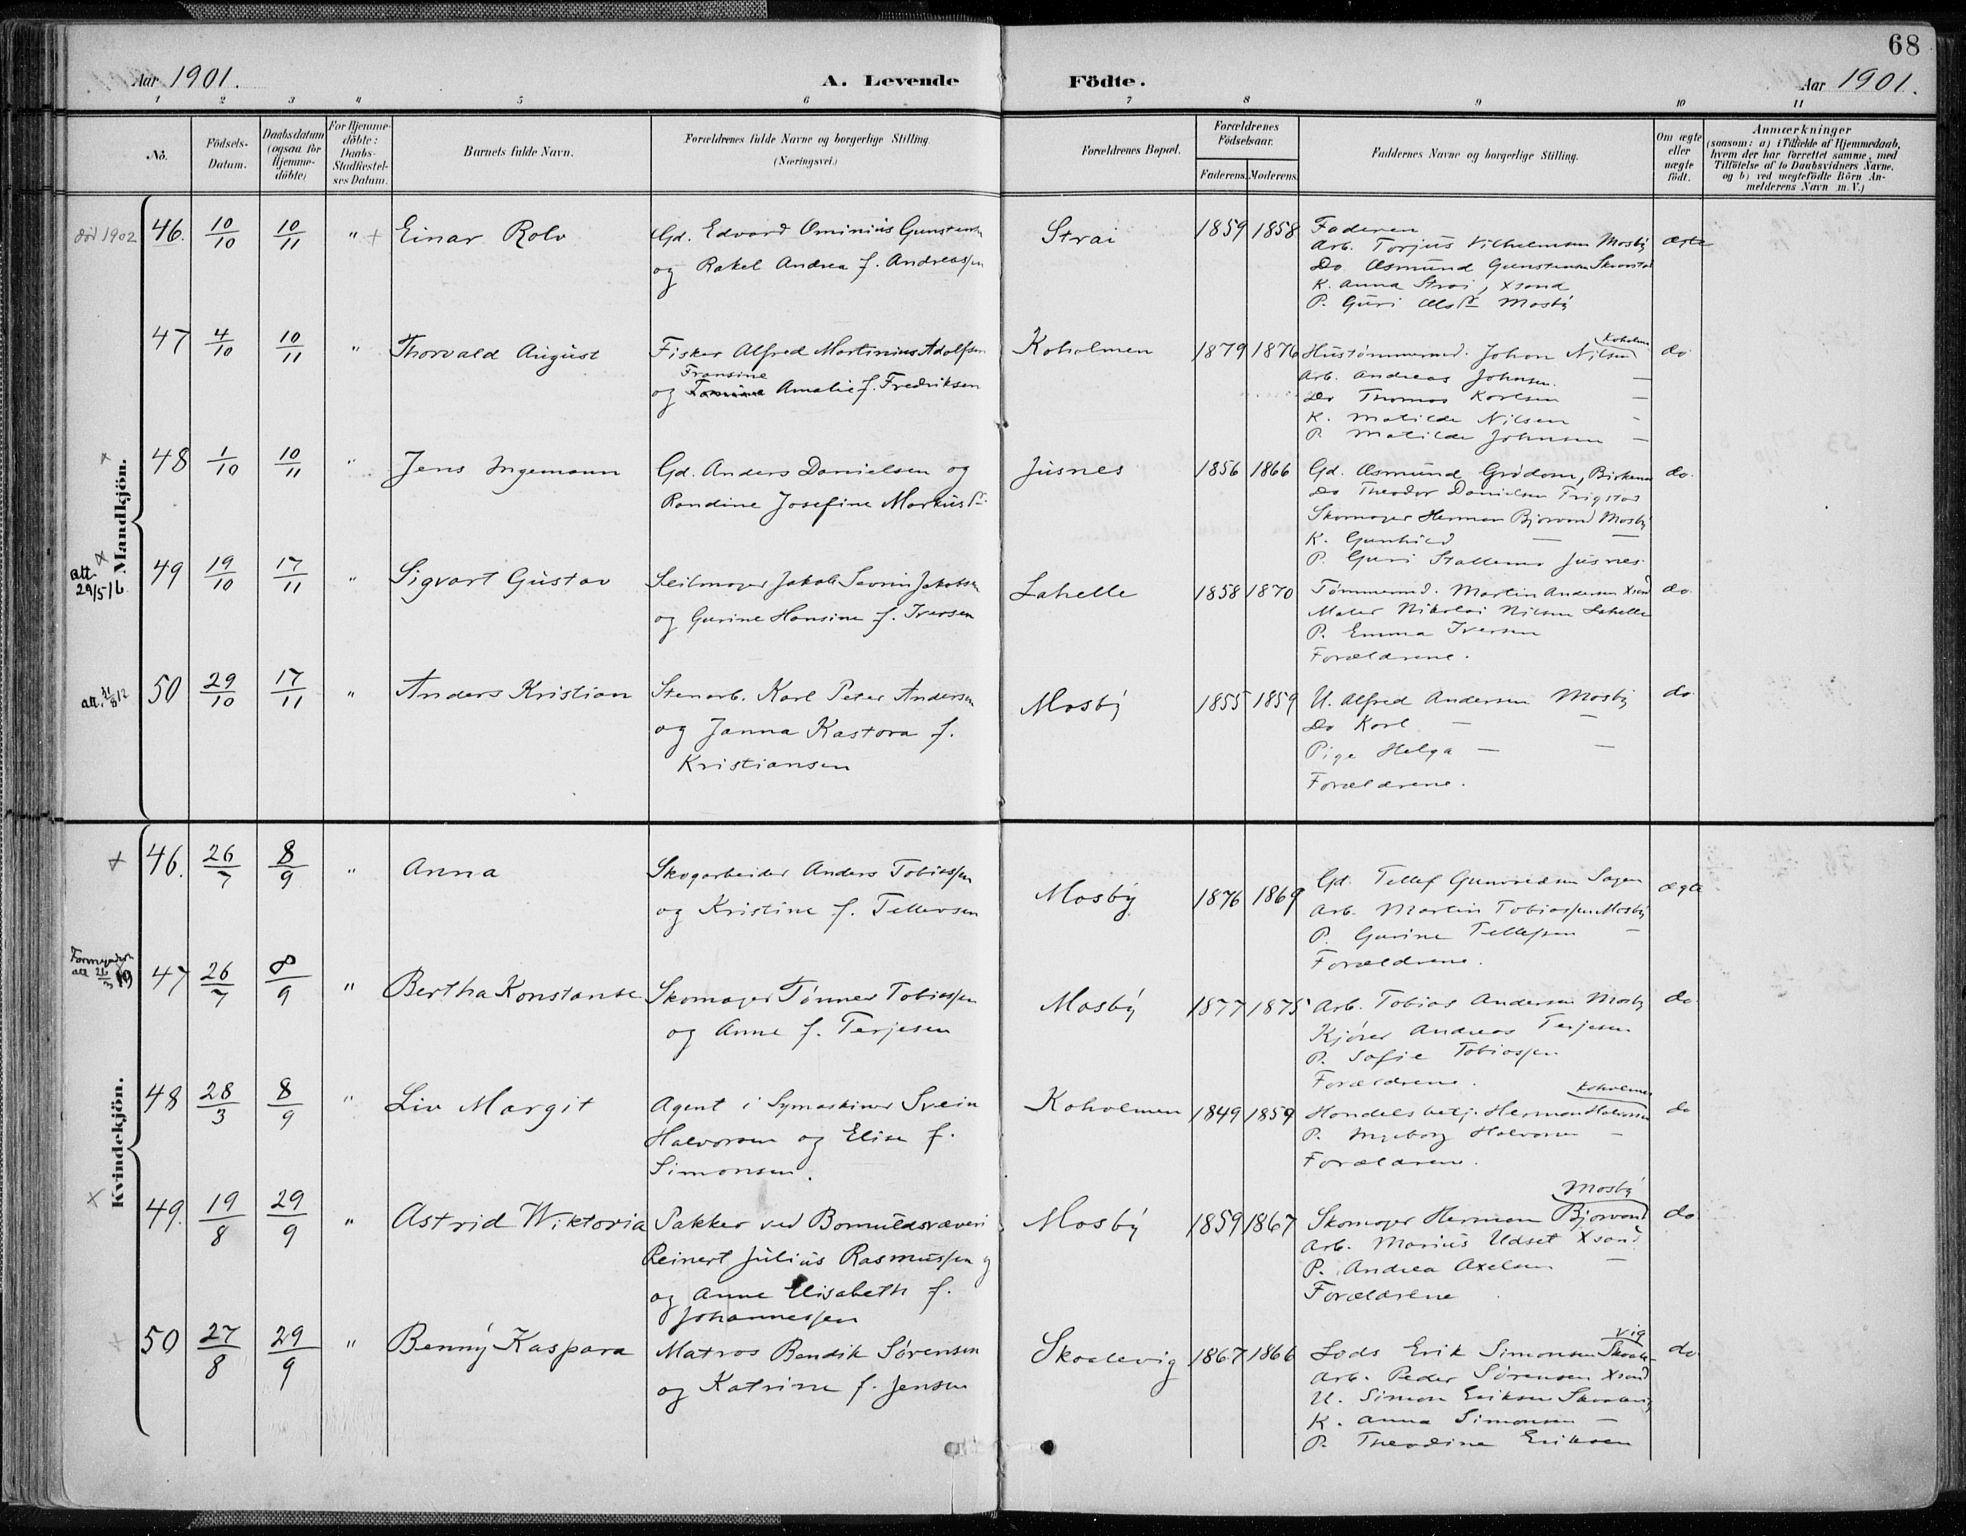 68
Aar 1901. A. Levende Födte. Aar 1901.
1 2 3 4 5 6 7 8 9 10 11
No. Födsels-Datum. Daabsdatum (ogsaa for Hjemme-döbte) For Hjemme-döbte: Daabs-Stadfæstel-ses Datum. Barnets fulde Navn. Forældrenes fulde Navne og borgerlige Stilling (Næringsvei.) Forældrenes Bopæl. Forældrenes Födselsaar. Faderens. Moderens. Faddernes Navne og borgerlige Stilling. Om ægte eller uægte födt. Anmærkninger (saasom: a) i Tilfælde af Hjemmedaab, hvem der har forrettet samme, med Tilföielse af to Daabsvidners Navne, og b) ved uægtefödte Börn An-melderens Navn m. V.)
Mandkjön.
død 1902 46. 10/10 10/11 " + Einar Rolv
Gd. Edvard Ominius Gunstensen
og Rakel Andrea f. Andreassen
Strai 1859 1858
Faderen
Arb. Torjus Vilhelmsen Mosby
Do Asmund Gunstensen
K. Anna Strai, Xsand
P. Guri Mosby
ægte
47 4/10 10/11 " Thorvald August
Fisker Alfred Martinius Adolfsen
Fransine
og Amalie f. Fredriksen
Koholmen 1879 1876
Koholmen
Hustømmermd. Johan Nilsen
Arb. Andreas Johnsen. —
Do Thomas Karlsen —
K. Matilde Nilsen -
P. Matilde Johnsen —
do.
x
48 1/10 10/11 " Jens Ingemann
Gd. Anders Danielsen og
Randine Josefine Markusdr.
Jusnes 1856 1866
Gd. Asmund Grødum, Birkenes
Do Theodor Danielsen Frigstad
Skomager Herman Bjorvand Mosby
K. Gunhild — —
P. Guri Stallemo Jusnes
do.
x
att. 29/5 16 49 19/10 17/11 " Sigvart Gustav
Seilmager Jakob Severin Jakobsen
og Gurine Hansine f. Iversen
Lahelle 1858 1870
Tømmermd. Martin Andersen Xsand
Maler Nikolai Nilsen Lahelle
P. Emma Iversen
Forældrene.
do.
att. 21/8 12 50 29/10 17/11 " Anders Kristian
Stenarb. Karl Peter Andersen
og Janna Kastora f.
Kristiansen
Mosby 1855 1859
U. Alfred Andersen Mosby
Do Karl — —
Pige Helga — —
Forældrene.
do
Kvindekjön.
+ 46. 26/7 8/9 " Anna
Skogarbeider Anders Tobiassen
og Kristine f. Tellevsen
Mosby 1876 1869
Gd. Tellef Gunvaldsen Sagen
Arb. Martin Tobiassen Mosby
P. Gurine Tellefsen —
Forældrene.
ægte
att 26/3 19 47 26/7 8/9 " Bertha Konstanse
Skomager Tønnes Tobiassen
og Anne f. Terjesen
Mosby 1877 1875
Arb. Tobias Andersen Mosby
Kjører Andreas Terjesen
P. Sofie Tobiassen
Forældrene.
do.
48 28/3 8/9 " Liv Margit
Agent i Symaskiner Svein
Halvorsen og Elise f.
Simonsen.
Koholmen 1849 1859
Koholmen
Handelsbetj. Herman Halvorsen
P. Ingeborg Halvorsen —
Forældrene.
do
x
49. 19/8 29/9 " Astrid Wiktoria
Pakker ved Bomuldsvæveri
Reinert Julius Rasmussen
og Anne Elisabeth f.
Johannessen
Mosby 1859 1867
Mosby
Skomager Herman Bjorvand
Arb. Marius Udset Xsand
P. Andrea Axelsen —
Forældrene
do.
+ 50 27/8 29/9 " Benny Kaspara
Matros Bendik Sørensen
og Katrine f. Jensen
Skaalevig 1867 1866
vig
Lods Erik Simonsen Skaale-
Arb. Peder Sørensen Xsand
U. Simon Eriksen Skaalevig
K. Anna Simonsen —
P. Theodine Eriksen
do.